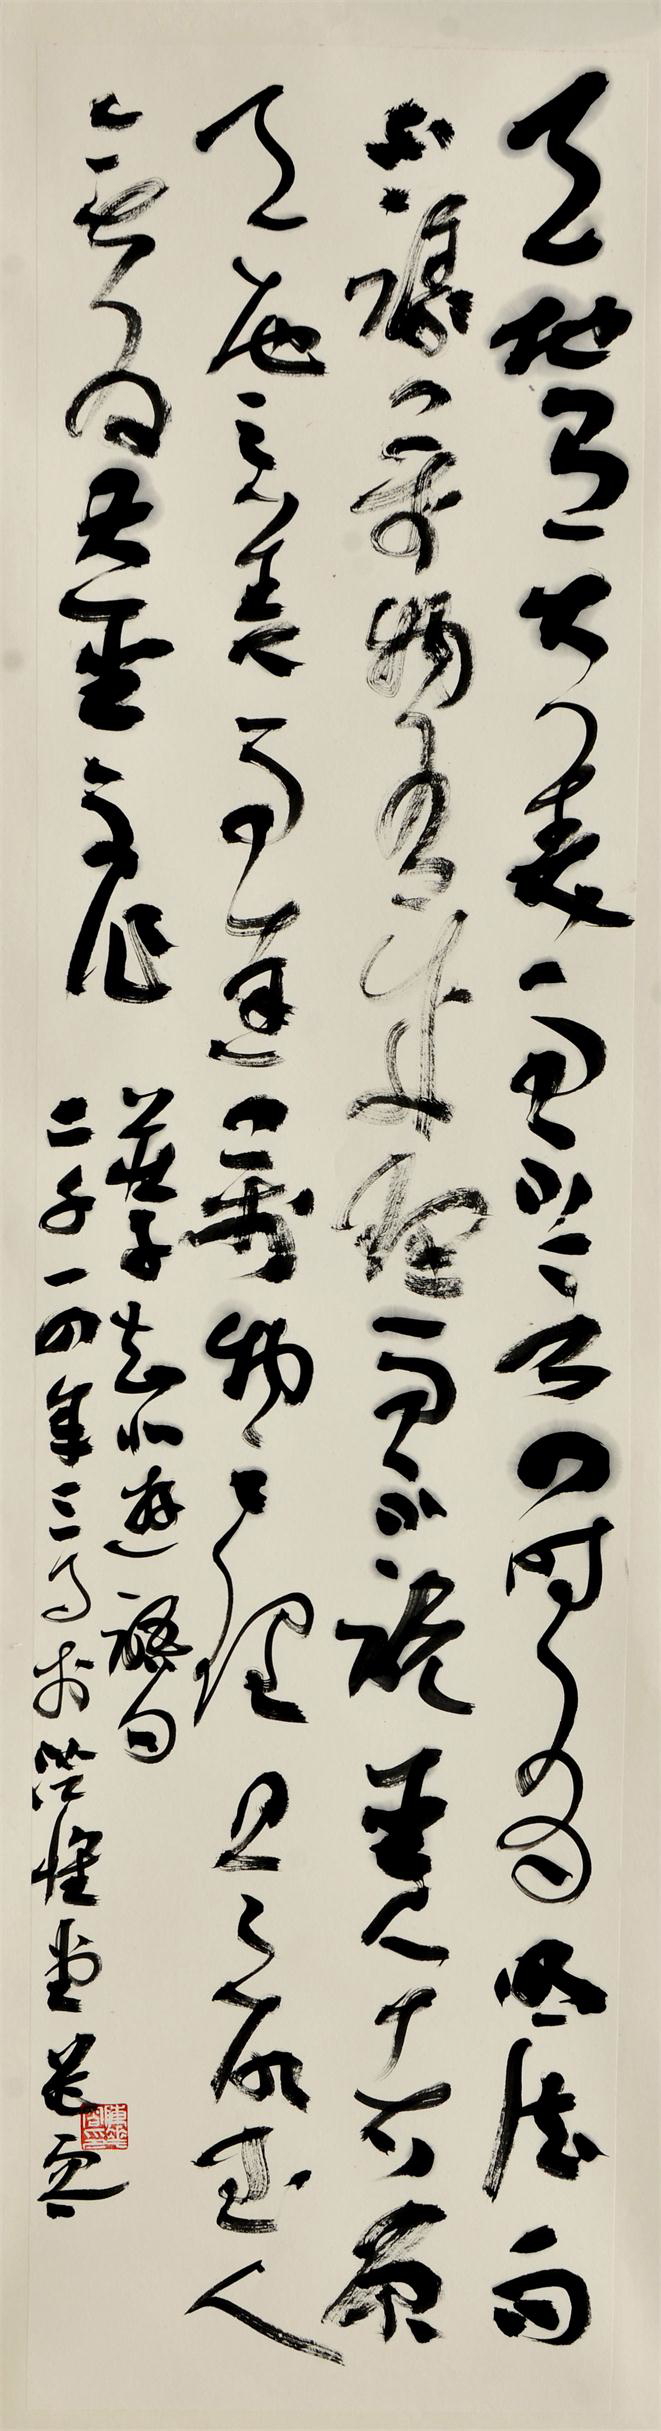 天地有大美而不言四時有明法而
不議萬物有成理而不說聖人者原
天地之美而達萬物之理是故至人
無為大聖不作
莊子知北遊語句
二千一四年三月於